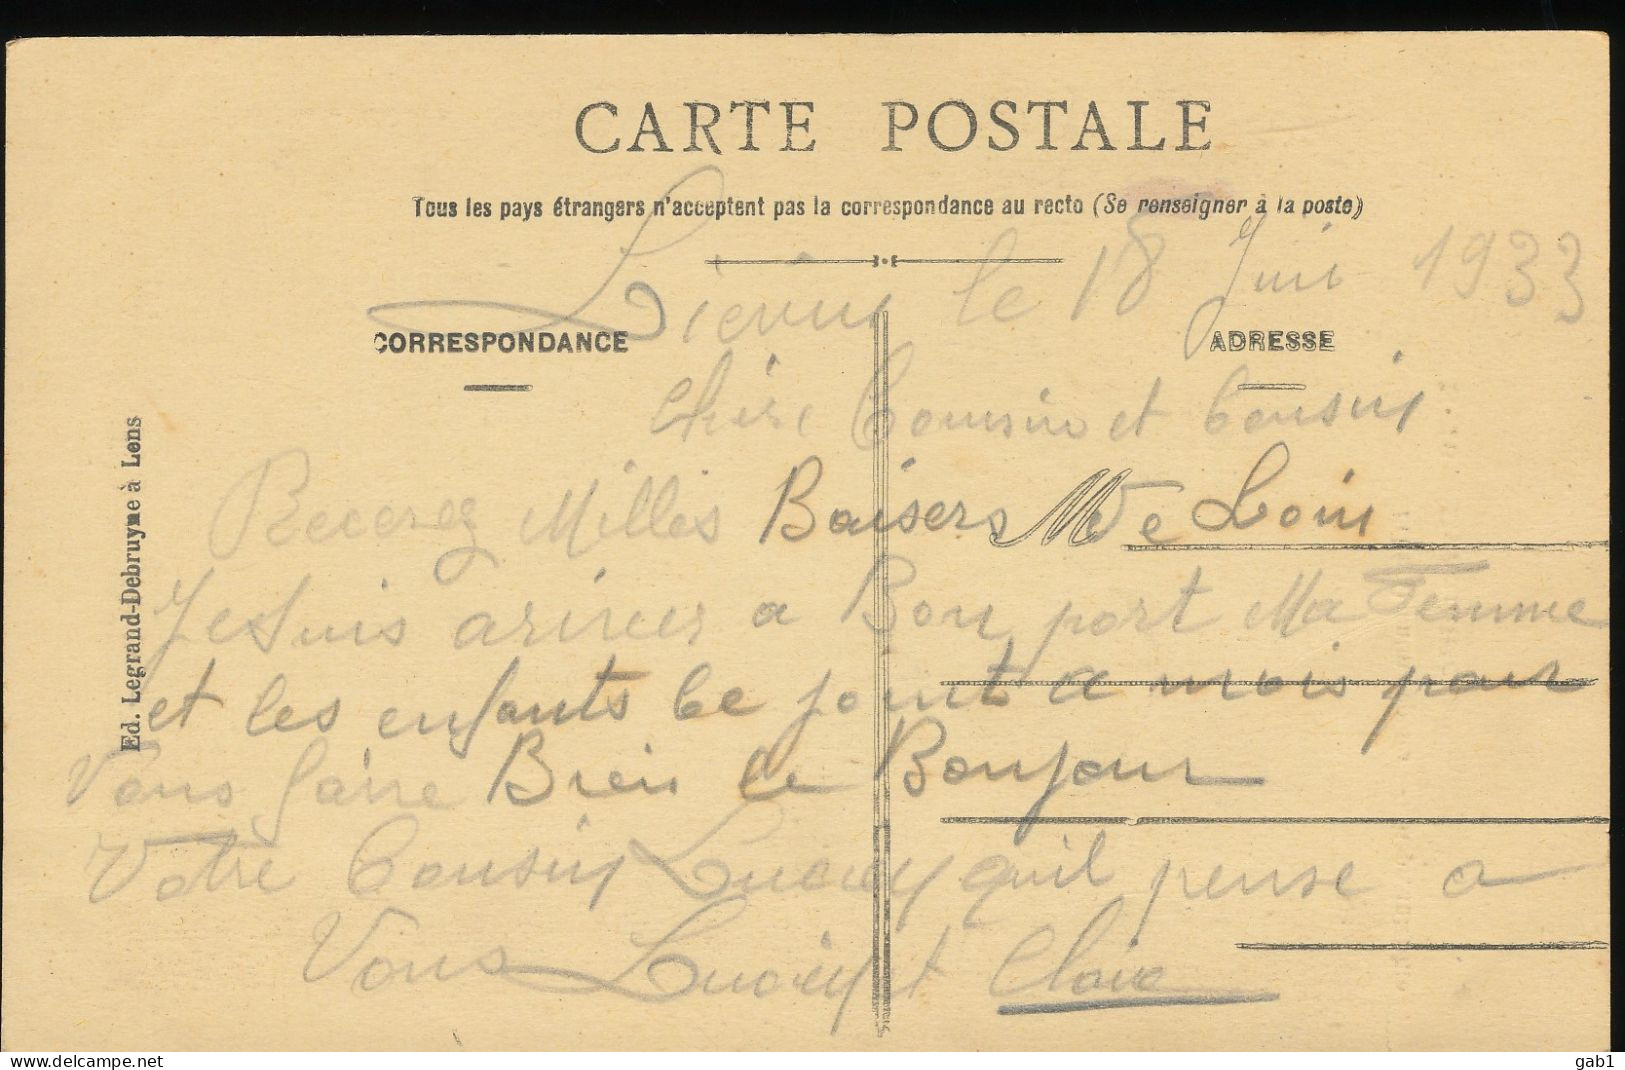 CARTE POSTALE
Tous les pays étrangers n'acceptent pas la correspondance au recto (Se renseigner à la poste)
Liévin le 18 Juin 1933
CORRESPONDANCE
ADRESSE
Chère Cousine et Cousin
Recevez Milles Baisers De Loin
M
Je suis arivér a Bon port Ma Femme
et les enfants ce joint a mois pour
Vous faire Bien le Bonjour
Votre Cousin qu'il pense a
Vous et Claire
Ed. Legrand-Debruyne à Lens
www.delcampe.net
gab1